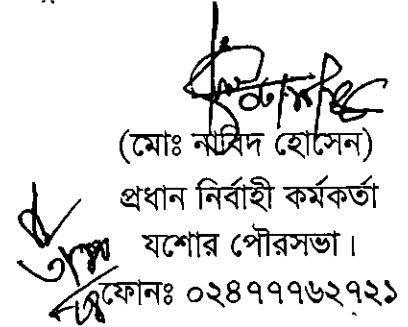 (মোঃ নাবিদ হোসেন)
প্রধান নির্বাহী কর্মকর্তা
যশোর পৌরসভা।
ফোনঃ ০২৪৭৭৭৬২৭২১